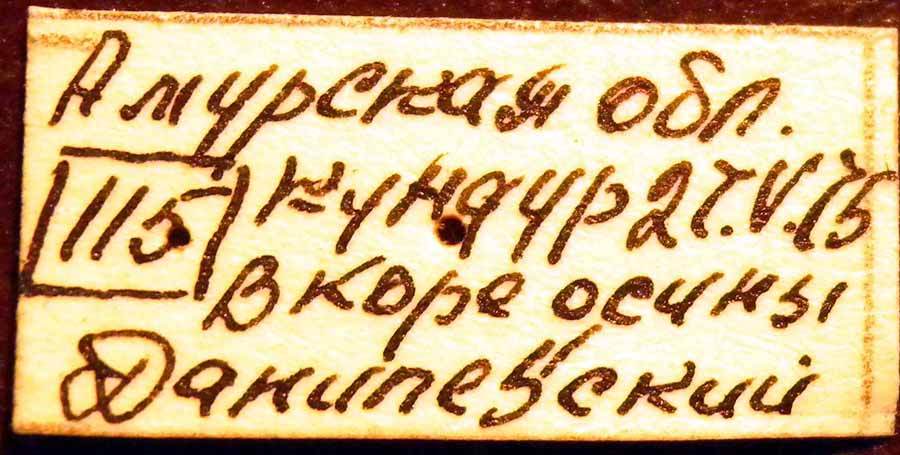 Амурская обл.
115 Кундур 27.V.75
В коре осины
Данилевский